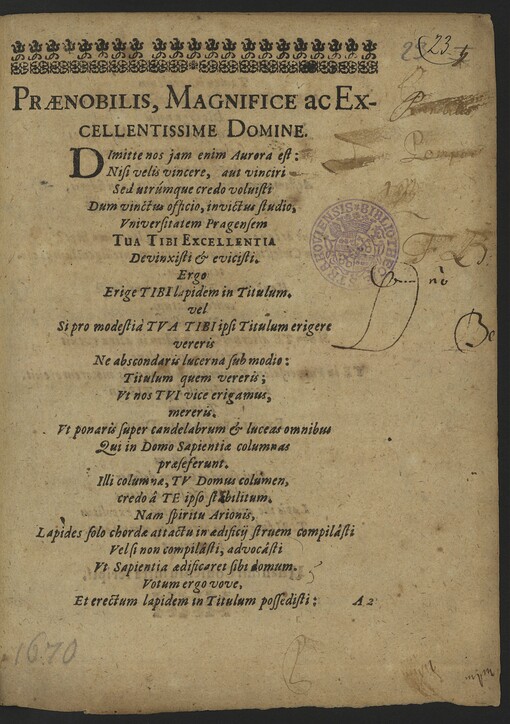 23.
PRÆNOBILIS, MAGNIFICE ac EX-
CELLENTISSIME DOMINE.
DImitte nos jam enim Aurora est:
Nisi velis vincere, aut vinciri
Sed utrúmque credo voluisti
Dum vinctus officio, invictus studio,
Vniversitatem Pragensem
TUA TIBI EXCELLENTIA
Devinxisti & evicisti.
Ergo
Erige TIBI lapidem in Titulum.
vel
Si pro modestiâ TVA TIBI ipsi Titulum erigere
vereris
Ne abscondaris lucerna sub modio:
Titulum quem vereris;
Vt nos TVI vice erigamus,
mereris.
Vt ponaris super candelabrum & luceas omnibus
Qui in Domo Sapientiæ columnas
præseferunt.
Illi columnæ, TV Domus columen,
credo â TE ipso stabilitum.
Nam spiritu Arionis,
Lapides solo chordæ attactu in ædificij struem compilâsti
Vel si non compilâsti, advocâsti
Vt Sapientia ædificaret sibi domum.
Votum ergo vove,
Et erectum lapidem in Titulum possedisti: A 2
1670